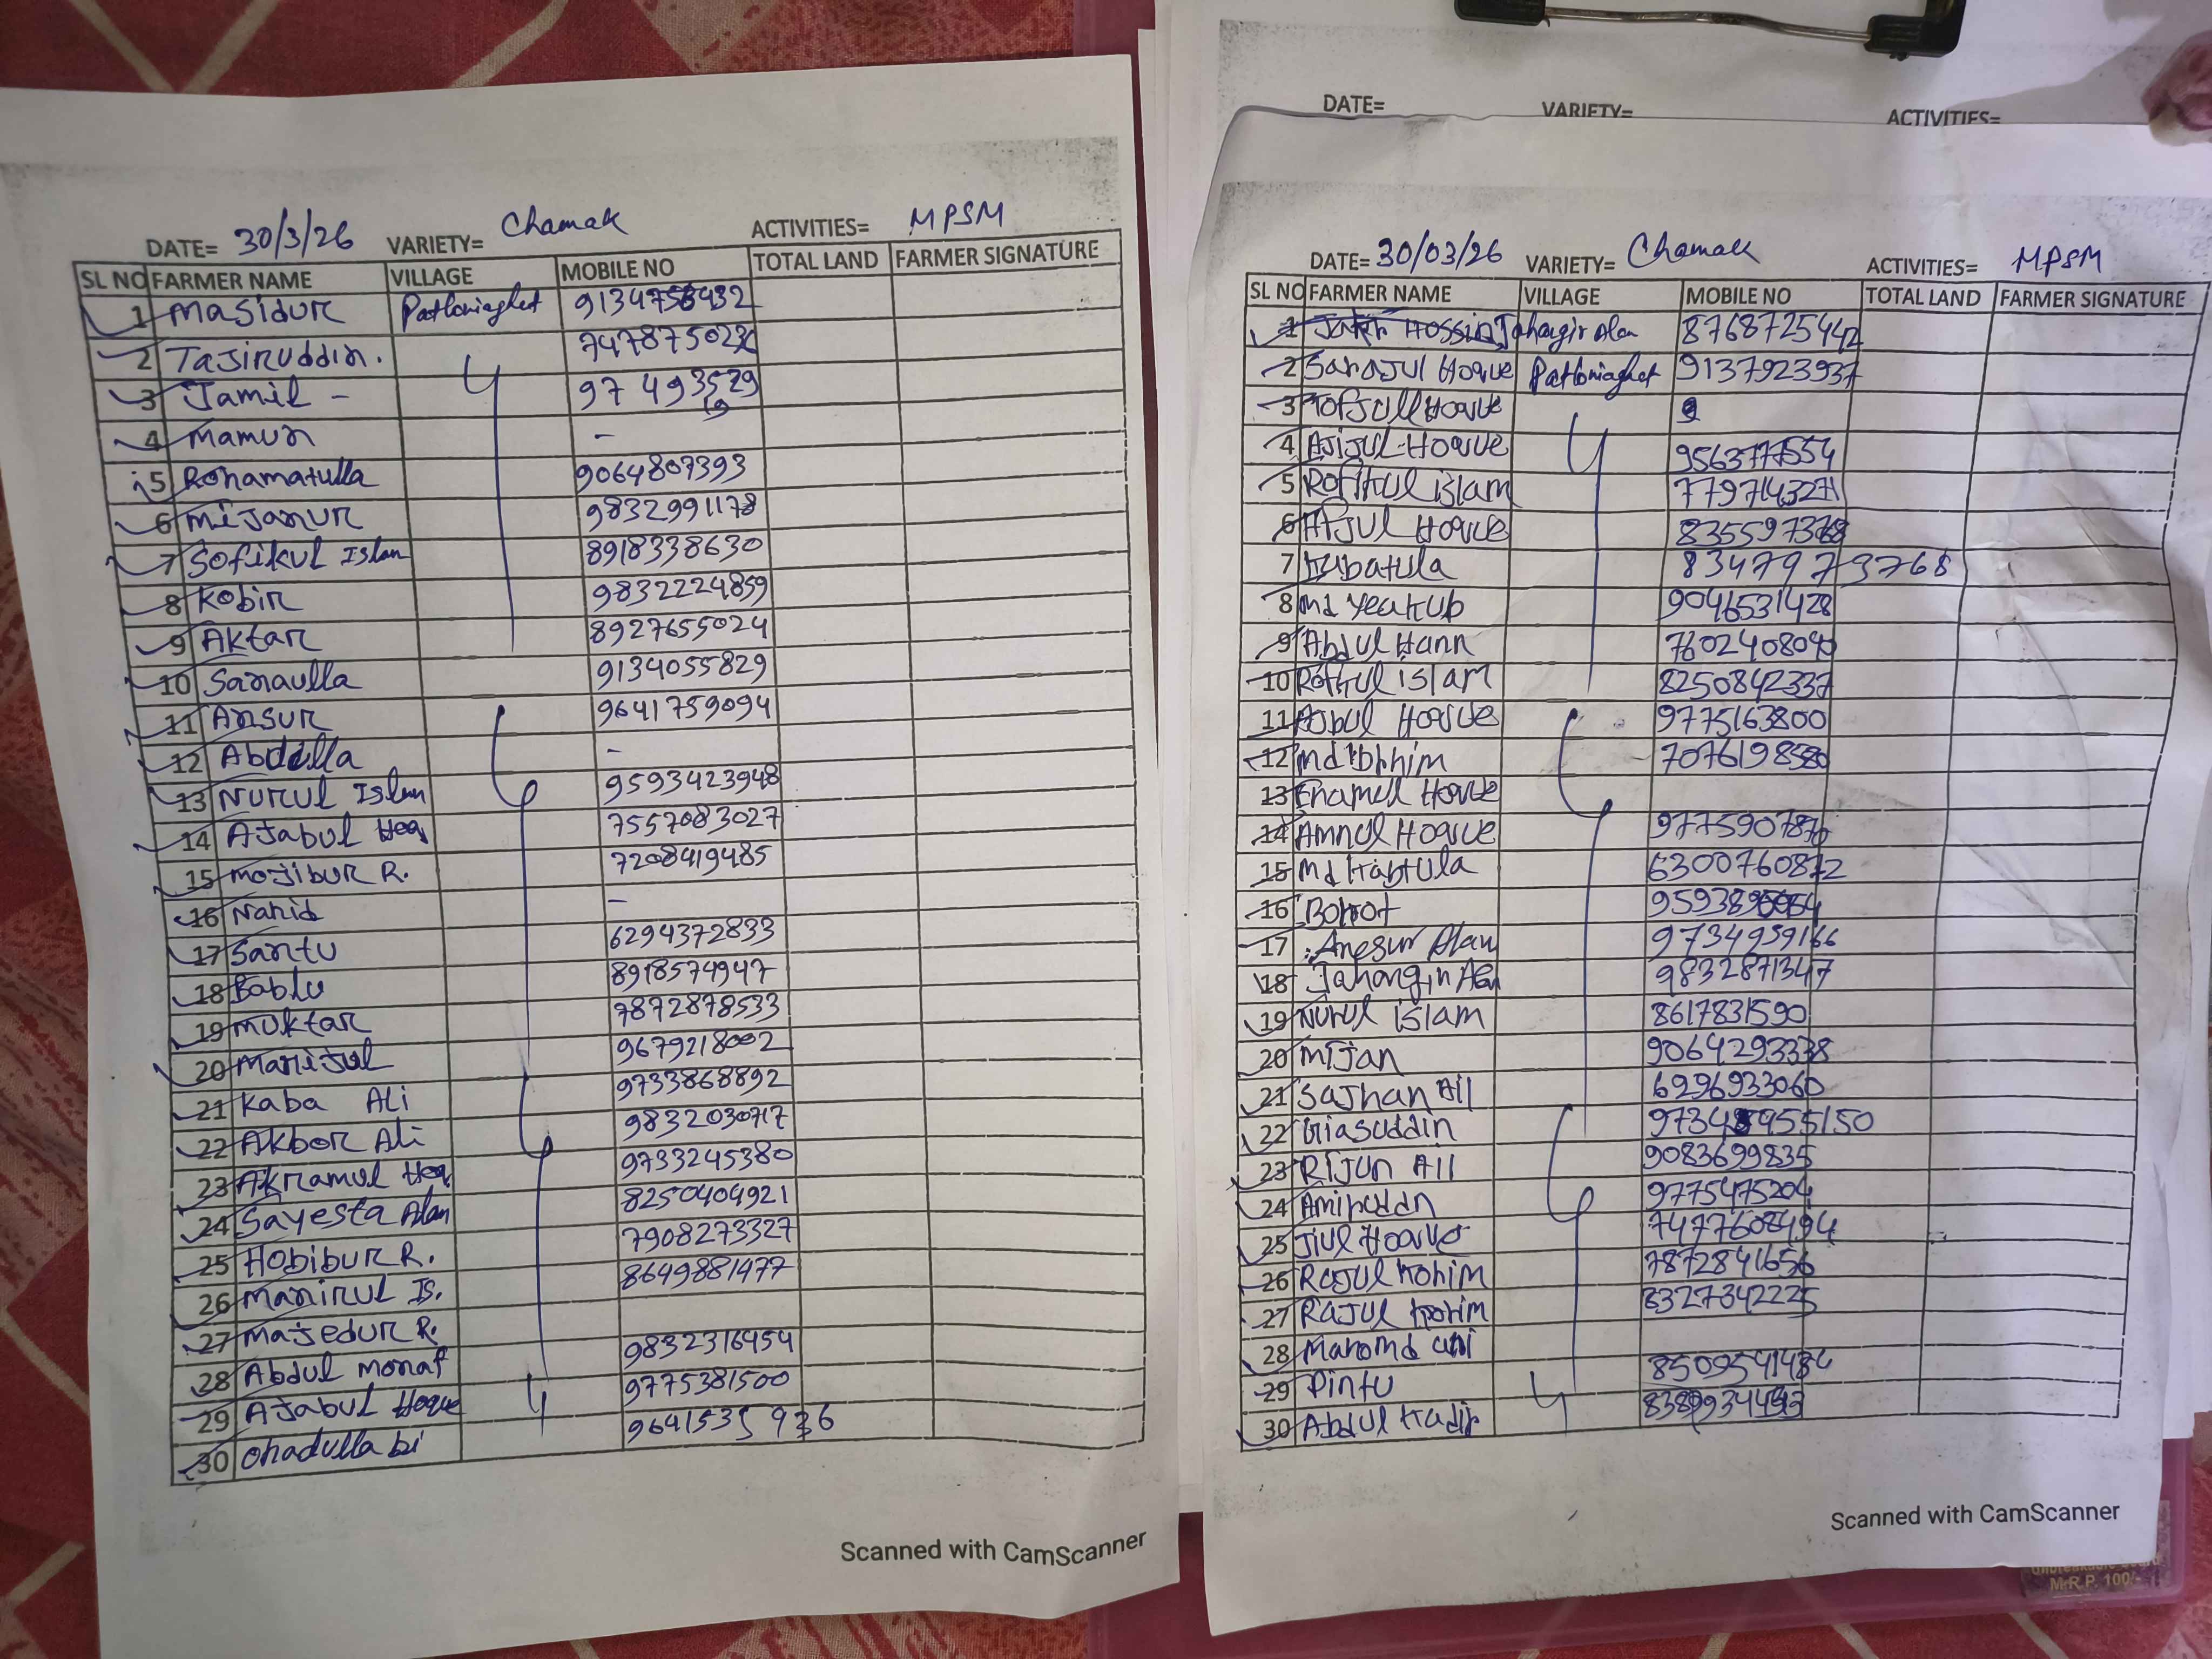 DATE= 30/3/26 VARIETY= Chamak ACTIVITIES= MPSM
SL NO FARMER NAME VILLAGE MOBILE NO TOTAL LAND FARMER SIGNATURE
1 Masidur Patloniaghat
2 Tajiruddin.
3 Jamil -
4 Mamun -
5 Rohamatulla 9064807393
6 Mijanur 9832991178
7 Sofikul Islam 8918338630
8 Kobir 9832224859
9 Aktar 8927655024
10 Sanaulla 9134055829
11 Ansur 9641759094
12 Abdulla -
13 Nurul Islam 9593423948
14 Ajabul Hoq 7557083027
15 Mojibur R. 7208419485
16 Nahid -
17 Santu 6294372833
18 Bablu 8918574947
19 Muktar 7872878533
20 Manijul 9679218002
21 Kaba Ali 9733868892
22 Akbor Ali 9832030717
23 Akramul Hoq 9733245380
24 Sayesta Alam 8250404921
25 Hobibur R. 7908273327
26 Manirul Is. 8649881477
27 Majedur R.
28 Abdul Monaf 9832316454
29 Ajabul Hoque 9775381500
30 Ohadulla bi 9641535936
Scanned with CamScanner
DATE= VARIETY= ACTIVITIES=
DATE= 30/03/26 VARIETY= Chamak ACTIVITIES= MPSM
SL NO FARMER NAME VILLAGE MOBILE NO TOTAL LAND FARMER SIGNATURE
1 Jahangir Alam 8768725442
2 Sarajul Hoque Patloniaghat 9137923937
3 Tofjull Hoque
4 Ajijul Hoque 9563777554
5 Rofikul islam 7797143271
6 Atjul Hoque
7 8347973768
8 Md Yeakub 9046531428
9 Abdul Hann
10 Rofikul islam 8250842337
11 Hoque 9775163800
12 Md
13 Enamul Hoque
14 Amnul Hoque
15 Md 6300760872
16
17 Anesur Alam 9734959166
18 Jahangir Alam 9832871347
19 Nurul islam 8617831590
20 Mijan 9064293338
21 Sajhan All 6296933060
22 Giasuddin
23 Rijun All 9083699835
24 9775475204
25 Jiul Hoque 7477608494
26 Rajul 7872841656
27 Rajul 8327342225
28
29 Pintu
30 Abdul Kadir
Scanned with CamScanner
M.R.P. 100/-